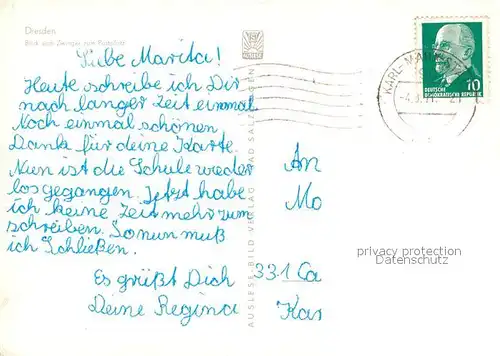 Dresden
Blick vom Zwinger zum Postplatz
Liebe Marita!
Heute schreibe ich Dir
nach langer Zeit einmal.
Noch einmal schönen
Dank für deine Karte.
Nun ist die Schule wieder
los gegangen. Jetzt habe
ich keine Zeit mehr zum
schreiben. So nun muß
ich Schließen.
Es grüßt Dich
Deine Regina
AUSLESE-BILD-VERLAG BAD SALZUNGEN
KARL-MARX-ST
10
DEUTSCHE
DEMOKRATISCHE REPUBLIK
An
Mo
331 Ca
Kar
privacy protection
Datenschutz